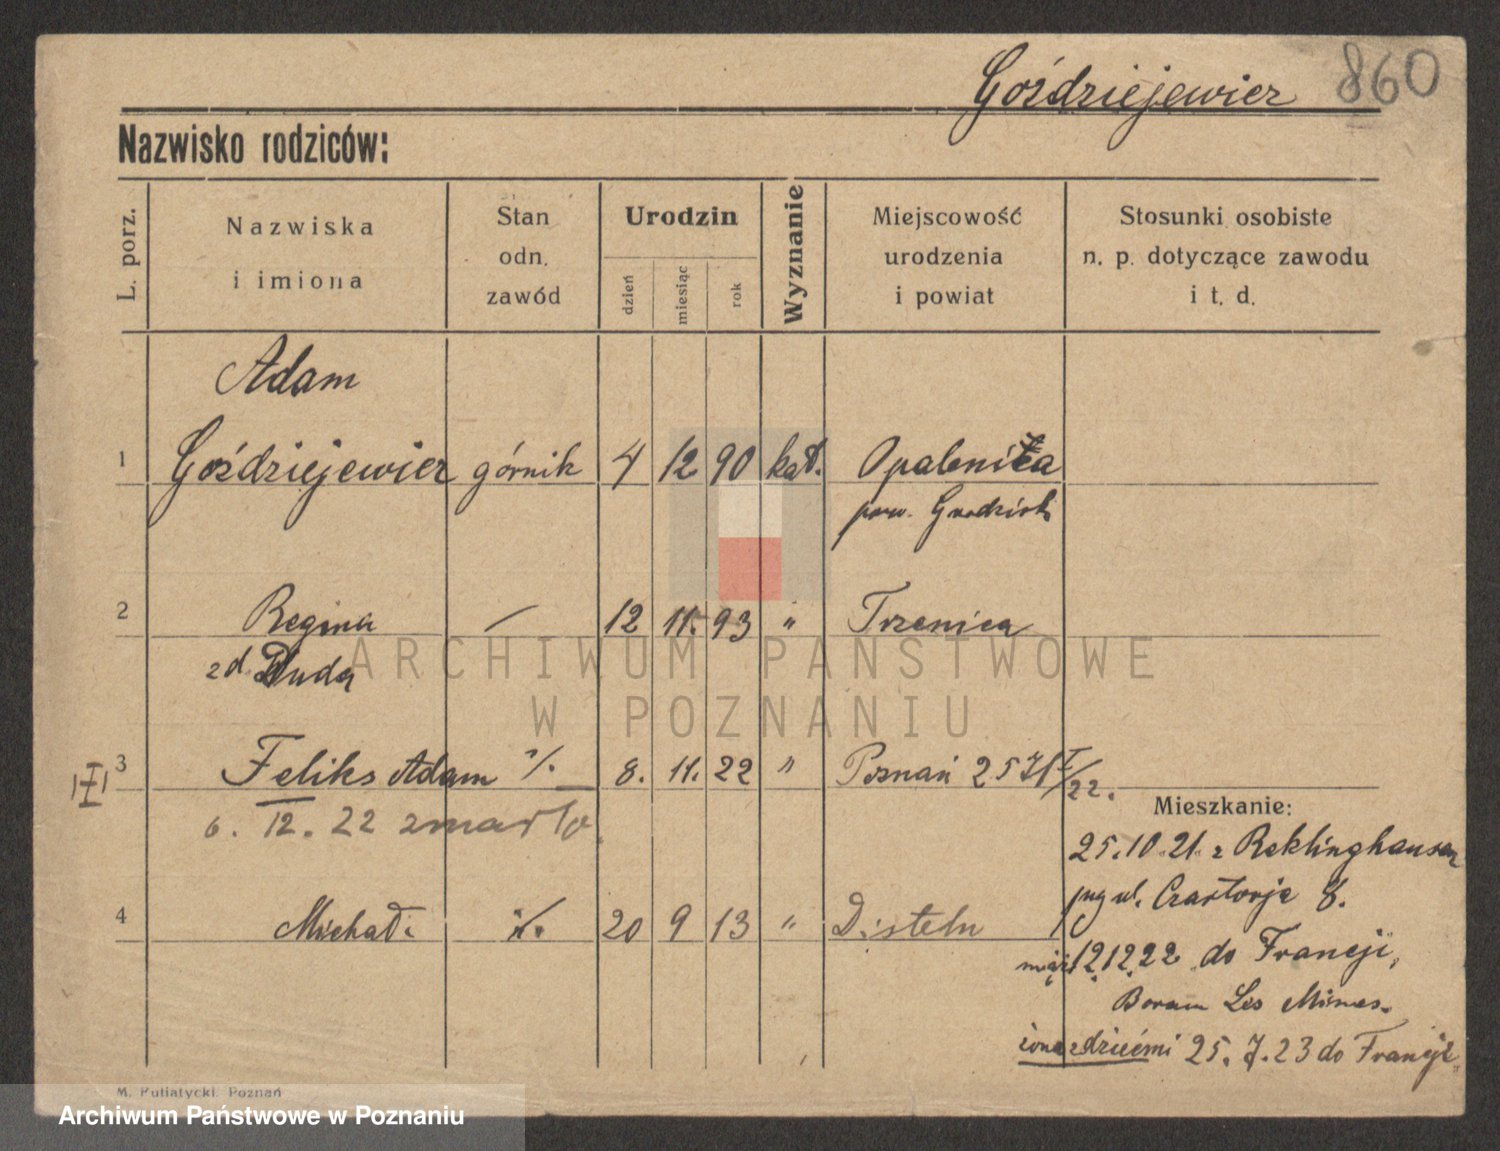 Goździejewicz 860
Nazwisko rodziców:
L. porz.
Nazwiska
i imiona
Stan
odn.
zawód
Urodzin
dzień
miesiąc
rok
Wyznanie
Miejscowość
urodzenia
i powiat
Stosunki osobiste
n. p. dotyczące zawodu
i t. d.
Adam
1 Goździejewicz górnik 4 12 90 kat. Opalenica
pow. Grodzisk
2 Regina — 12 11. 93 " Trzenica
z d. Duda
3 Feliks Adam 8. 11. 22 " Poznań
6. 12. 22 zmarły
4 Michał 20 9 13 " Disteln
Mieszkanie:
25.10.21 z Reklinghausen
ul. Czartorja 8.
mąż 12.12.22 do Francji,
Les Mines.
żona z dziećmi 25.7.23 do Francji
M. Putiatycki, Poznań
ARCHIWUM PAŃSTWOWE
W POZNANIU
Archiwum Państwowe w Poznaniu